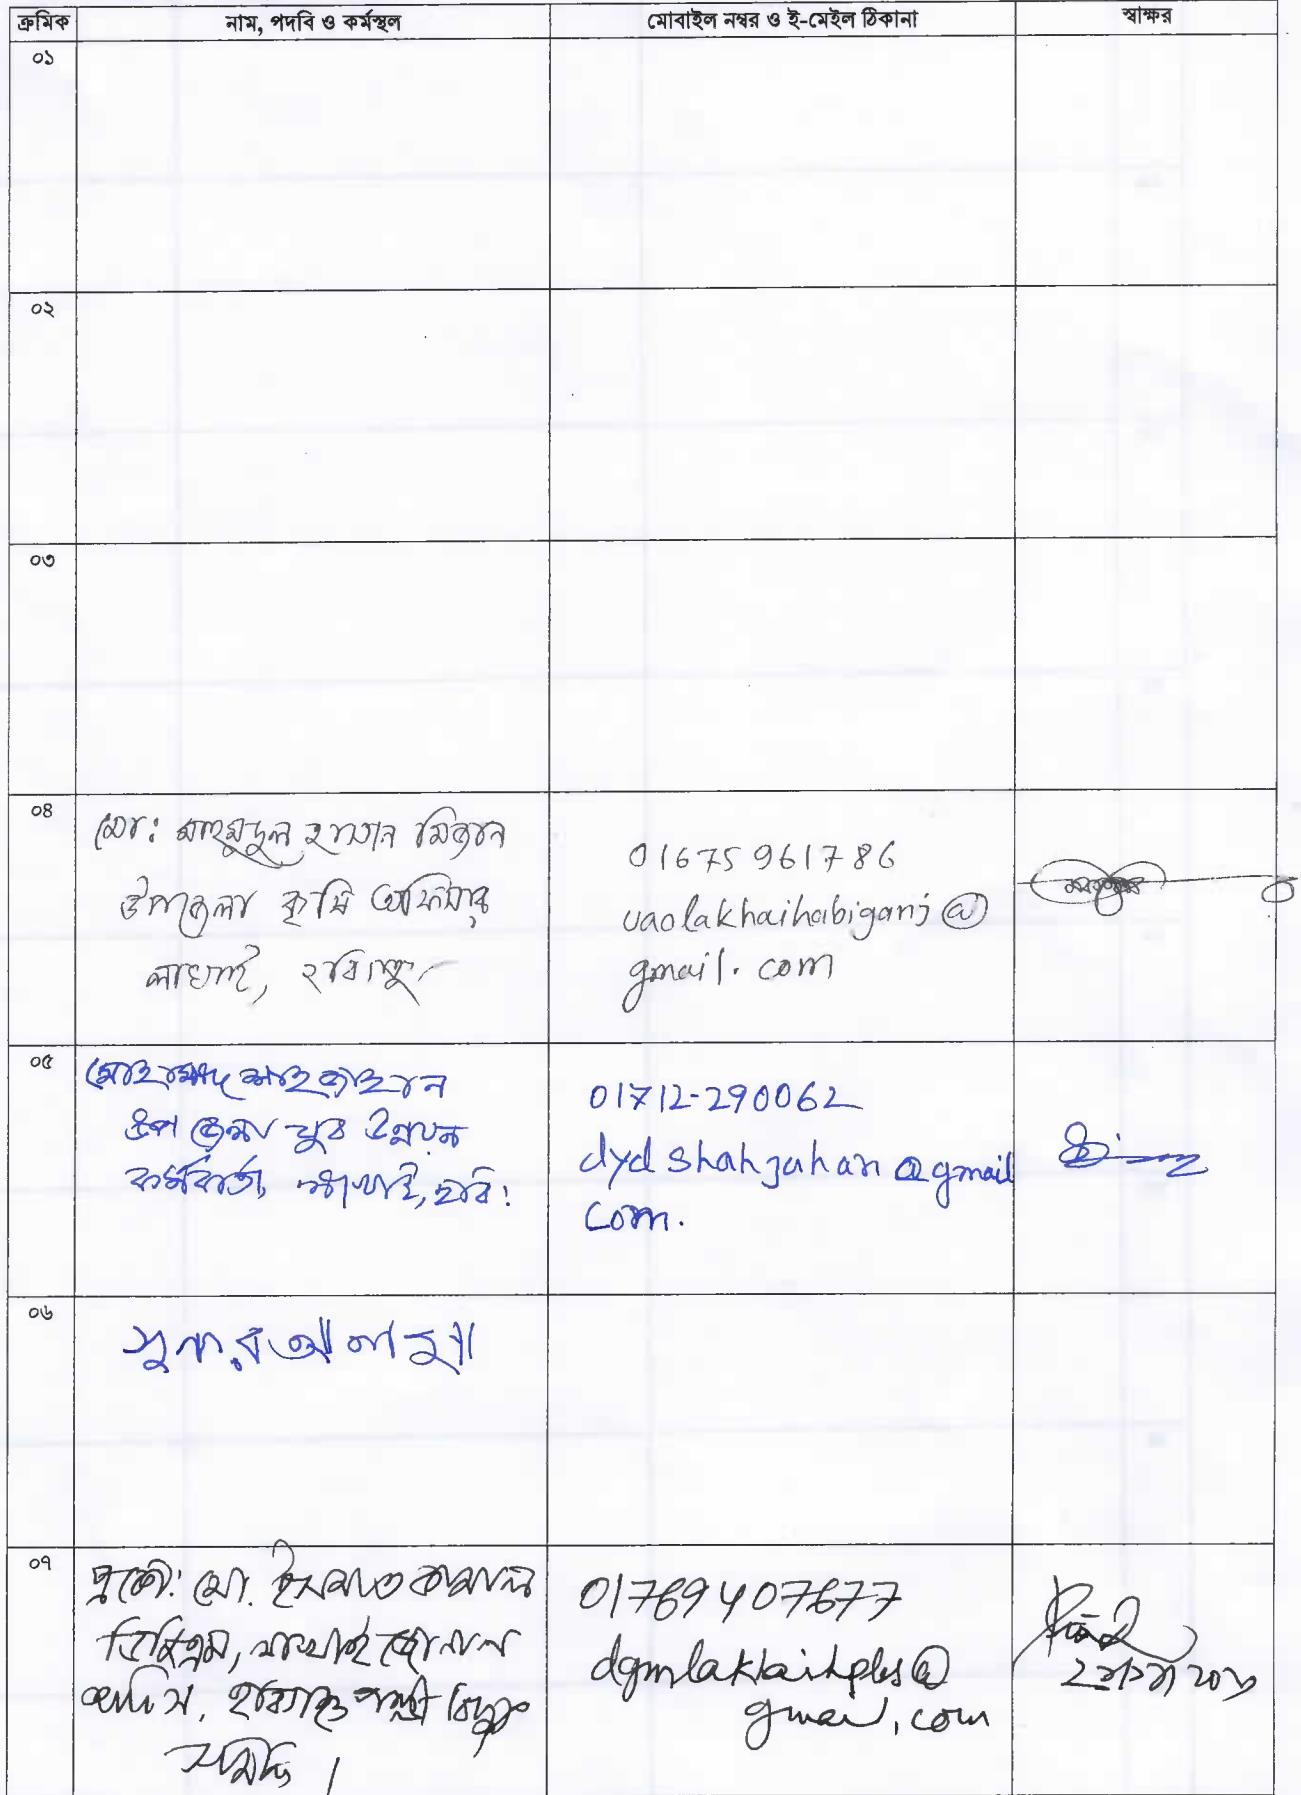 ক্রমিক নাম, পদবি ও কর্মস্থল মোবাইল নম্বর ও ই-মেইল ঠিকানা স্বাক্ষর
০১
০২
০৩
০৪
মো: মাহমুদুল হাসান মিজান
উপজেলা কৃষি অফিসার
লাখাই, হবিগঞ্জ
01675961786
uaolakhaihabiganj@
gmail.com
০৫
মোহাম্মদ শাহজাহান
উপজেলা যুব উন্নয়ন
কর্মকর্তা, লাখাই, হবি:
01712-290062
dydshahjahan@gmail
com.
০৬
০৭
প্রকৌ: মো. ইসমাত কামাল
ডিজিএম, লাখাই জোনাল
অফিস, হবিগঞ্জ পল্লী বিদ্যুৎ
সমিতি।
01769407677
dgmlakhaihpbs@
gmail.com